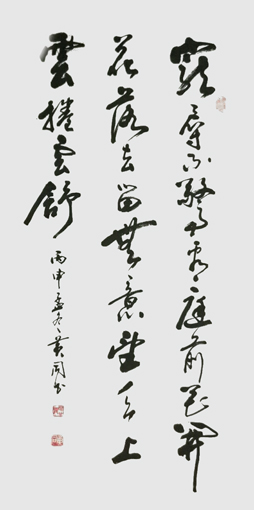 寵辱不驚閑看庭前花開
花落去留無意望天上
雲捲云舒
丙申孟冬黄周书